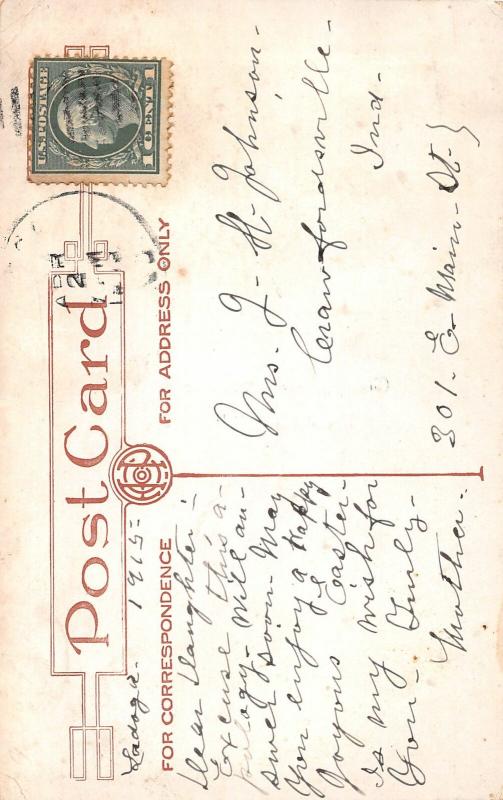 Post Card
FOR CORRESPONDENCE
FOR ADDRESS ONLY
U.S. POSTAGE
1 CENT 1
APR
2
Ladoga - 1915 =
Dear Daughter -
Excuse this a-
pology - Will an-
swer soon - May
you enjoy a Happy
Joyous Easter -
Is my wish for
You - Truly -
Mother -
Mrs. J - H - Johnson -
Crawfordsville -
Ind -
301 - E - Main - St -